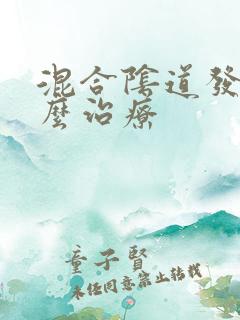 混合陰道發
麼治療
童子賢
未经同意禁止转载